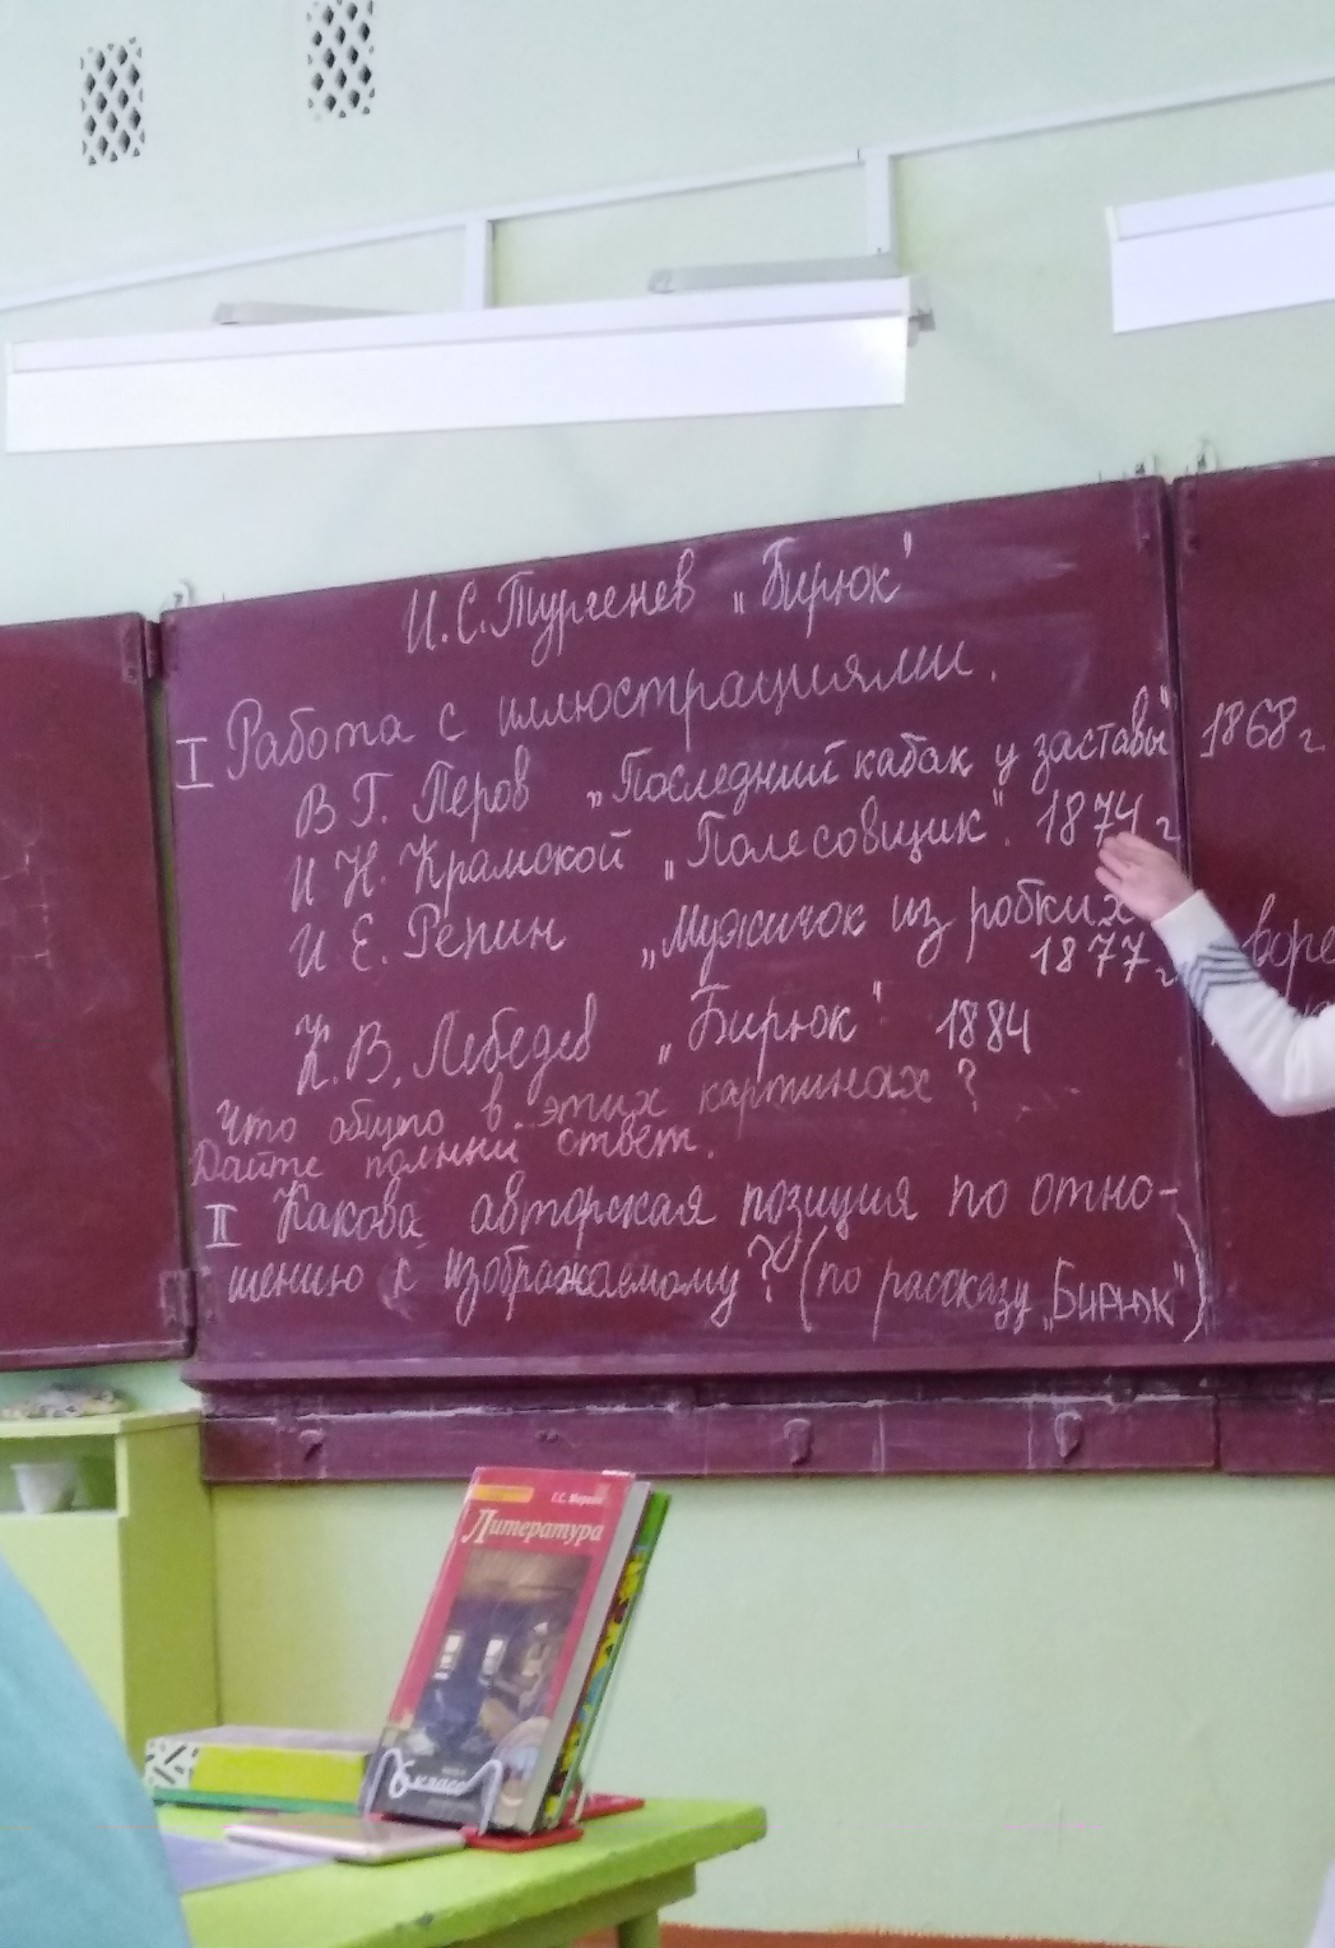 И.С.Тургенев „Бирюк"
I Работа с иллюстрациями.
В Г. Перов „Последний кабак у заставы" 1868 г
И Н. Крамской „Полесовщик". 1874 г
И. Е. Репин „Мужичок из робких
1877 г
К.В. Лебедев „Бирюк" 1884
Что общего в этих картинах?
Дайте полный ответ.
II Какова авторская позиция по отно-
шению к изображаемому? (по рассказу „Бирюк")
Литература
6 класс